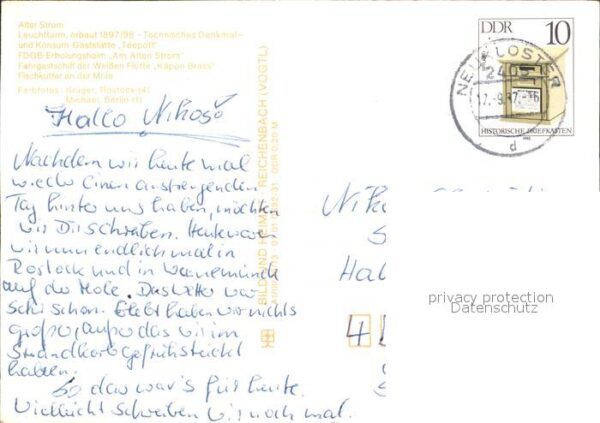 Alter Strom
Leuchtturm, erbaut 1897/98 - Technisches Denkmal -
und Konsum Gaststätte "Teepott"
FDGB Erholungsheim "Am Alten Strom"
Fahrgastschiff der Weißen Flotte "Käpp'n Brass"
Fischkutter an der Mole
Farbfotos: Krüger, Rostock (4)
Michael, Berlin (1)
Hallo Nikos
Nachdem wir heute mal
wieder einen anstrengenden
Tag hinter uns haben, möchten
wir Dir schreiben. Heute waren
wir nun endlich mal in
Rostock und in Warnemünde
auf der Mole. Das Wetter war
sehr schön. Erlebt haben wir nichts
großes, außer das wir im
Strandkorb gefrühstückt
haben.
So das war's für heute.
Vielleicht schreiben wir noch mal.
BILD UND HEIMAT REICHENBACH (VOGTL)
DDR
10
NEUKLOSTER
2405
HISTORISCHE BRIEFKASTEN
d
Nik
Hal
4
privacy protection
Datenschutz